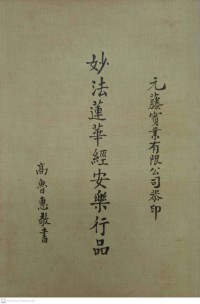 元藤實業有限公司恭印
妙法蓮華經安樂行品
高魯惠敬書